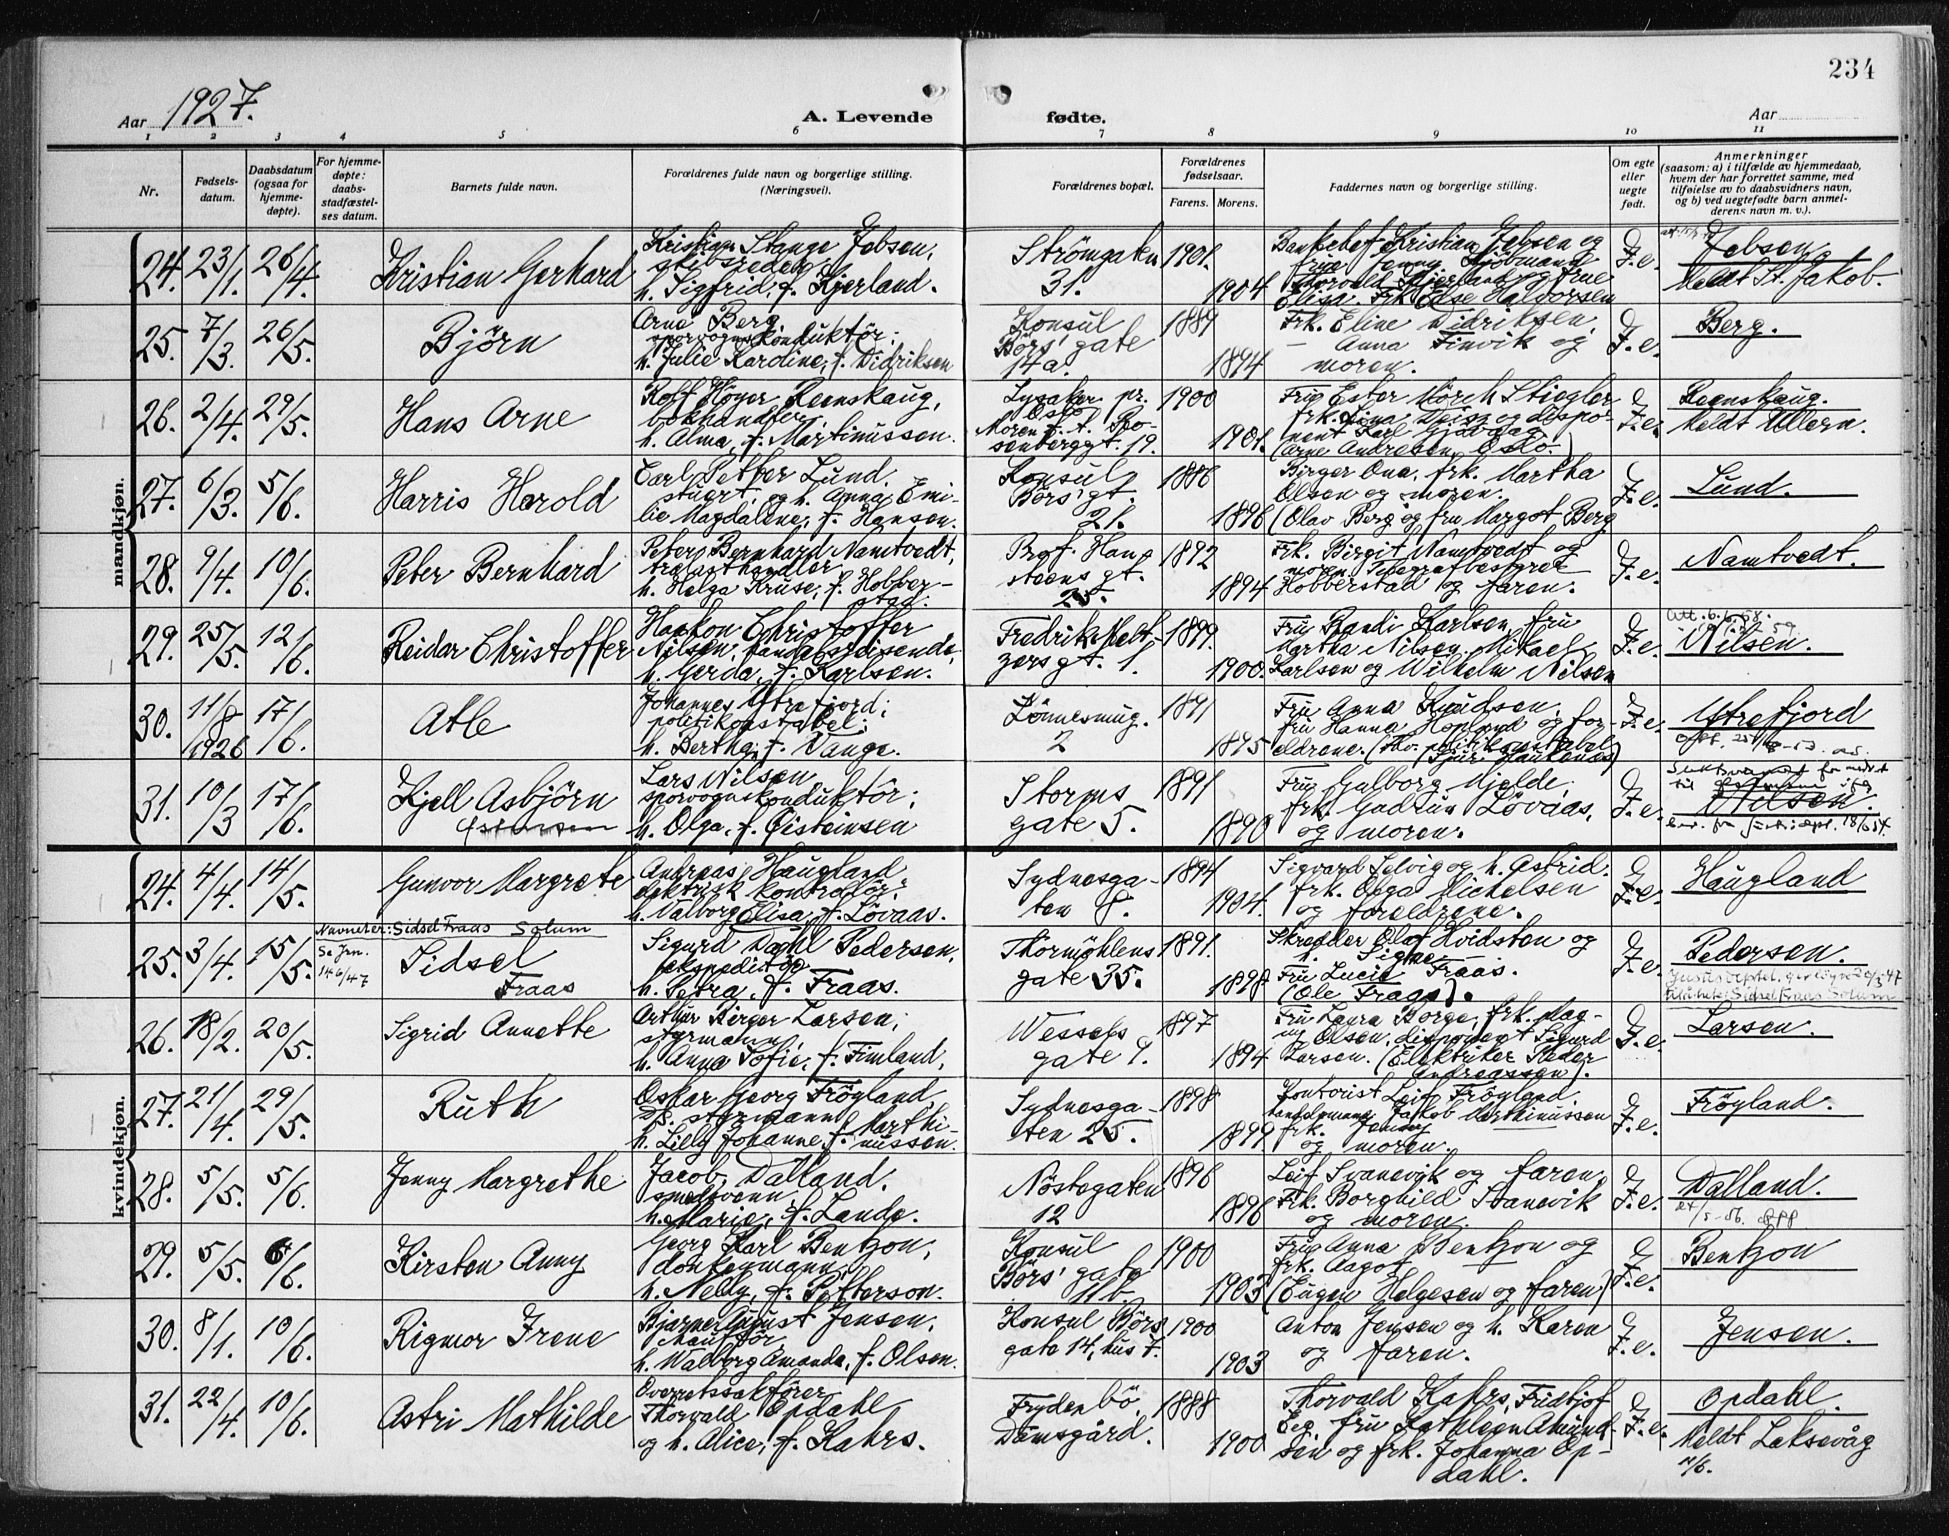 234
Aar 1927.
A. Levende fødte.
Aar
1 2 3 4 5 6 7 8 9 10 11
Nr.
Fødsels-
datum.
Daabsdatum
(ogsaa for
hjemme-
døpte).
For hjemme-
døpte:
daabs-
stadfæstel-
ses datum.
Barnets fulde navn.
Forældrenes fulde navn og borgerlige stilling.
(Næringsvei).
Forældrenes bopæl.
Forældrenes
fødselsaar.
Farens. Morens.
Faddernes navn og borgerlige stilling.
Om egte
eller
uegte
født.
Anmerkninger
(saasom: a) i tilfælde av hjemmedaab,
hvem der har forrettet samme, med
tilføielse av to daabsvidners navn,
og b) ved uegtefødte barn anmel-
derens navn m. v.).
mandkjøn.
24. 23/1. 26/4. Kristian Gerhard
Kristian Stange Jebsen,
skibsreder,
h. Sigfrid, f. Kjerland.
Strömgaten
31.
1901. 1904
Banksjef Kristian Jebsen og
frue Jenny Kjöbmann
Thorvald Kjerland og frue
Elisa. Frk. Else Halvorsen
F.e.
Jebsen
Meldt St. Jakob.
25. 7/3. 26/5. Björn
Arne Berg,
sporvognskonduktör;
h. Julie Kardine, f. Didriksen
Konsul
Börs' gate
14a.
1887 1894
Frk. Eline Didriksen,
— Anna Finvik og
moren.
F.e.
Berg.
26. 2/4. 29/5. Hans Arne
Rolf Höyer Reenskaug,
bokhandler,
h. Alma, f. Martinussen.
Lysaker pr.
Oslo
Moren f. t. Ro-
senberggt. 19.
1900 1901.
Fru Ester Mörch Stiegler
frk. Dina Deisz og dispo-
nent Karl Gjövaag
(Arne Andresen, Oslo.)
F.e.
Reenskaug.
Meldt Ullern.
27. 6/3. 5/6. Harris Harold
Carl Petter Lund.
stuert, og h. Anna Emi-
lie Magdalene, f. Hansen.
Konsul
Börs' gt.
21.
1886 1896
Birger Ona, frk. Martha
Olsen og moren.
(Olav Berg og fru Margot Berg
F.e.
Lund.
28. 9/4. 10/6. Peter Bernhard
Peter Bernhard Namtvedt,
trælasthandler,
h. Helga Kruse, f. Hobber-
stad.
Prof. Han-
steens gt.
25.
1892 1894
Frk. Birgit Namtvedt og
moren. Telegrafbestyrer
Hobberstad og faren.
F.e.
Namtvedt.
29. 25/5. 12/6. Reidar Christoffer
Haakon Christoffer
Nilsen, handelsreisende,
h. Gerda, f. Karlsen.
Fredrik Melt-
zers gt. 1.
1899. 1900.
Fru Randi Karlsen, fru
Martha Nilsen. Mikael
Karlsen og Wilhelm Nilsen
F.e.
Att. 6.6.58.
Nilsen.
30. 11/8 1926 17/6. Atle
Johannes Ytrefjord,
politikonstabel;
h. Bertha, f. Vange.
Lönnesmug.
2
1891 1895
Fru Anna Knudsen,
fru Hanna Hopland og for-
eldrene. (Fhv. politikonstabel
Sjur Haukenæs)
F.e.
Ytrefjord
31. 10/3 17/6. Kjell Asbjörn
Lars Nilsen
sporvognskonduktör;
h. Olga, f. Öisteinsen
Storms
gate 5.
1891 1890
Fru Gulborg Mjelde,
frk. Gudrun Lövaas,
og moren.
F.e.
Nilsen.
kvindekjøn.
24. 4/4. 14/5. Gunvor Margrete
Andreas Haugland
elektrisk kontrolör;
h. Valborg Elisa, f. Lövaas.
Sydnesga-
ten 8.
1894 1904.
Sigvard Selvig og h. Astrid.
frk. Olga Michelsen
og foreldrene.
F.e.
Haugland
Navnet er: Sidsel Fraas Solum
Se Jrn.
14 6/47
25. 3/4. 15/5. Sidsel
Fraas
Sigurd Dahl Pedersen,
ekspeditör
h. Petra, f. Fraas.
Thormöhlens
gate 35.
1891. 1898
Skredder Olaf Hvidsten og
h. Signe
Fru Lucie Fraas.
(Ole Fraas).
F.e.
Pedersen.
26. 18/2. 20/5. Sigrid Annette
Arthur Birger Larsen;
styrmann,
h. Anna Sofie, f. Fimland.
Wessels
gate 9.
1897 1894
Fru Laura Borge, frk. Mag-
ny Olsen, disponent Sigurd
Larsen. (Elektriker Peder
Andreassen).
F.e.
Larsen.
27. 21/4. 29/5. Ruth
Oskar Georg Fröyland,
styrmann
h. Lilly Johanne, f. Marthi-
nussen.
Sydnesga-
ten 25.
1898 1899
Kontorist Leif Fröyland.
handelsmann Jakob Marthinussen
frk. Jenny
og moren.
F.e.
Fröyland.
28. 5/5. 5/6. Jenny Margrethe
Jacob Dalland.
smedsvenn,
h. Marie, f. Lande.
Nöstegaten
12
1896 1896
Leif Svanevik og faren,
Frk. Borghild Svanevik
og moren.
F.e.
Dalland.
29. 5/5. 6/6. Kirsten Anny
Georg Karl Bentzon,
donkeymann,
h. Nelly, f. Petterson.
Konsul
Börs' gate
11b.
1900 1903
Fru Anna Bentzon og
frk. Aagot
(Eugen Helgesen og faren)
F.e.
Bentzon
30. 8/1. 10/6. Rigmor Irene
Bjarne August Jensen,
Montör
h. Walborg Amanda, f. Olsen.
Konsul Börs
gate 14, hus 7.
1900 1903
Anton Jensen og h. Karen
og faren.
F.e.
Jensen.
31. 22/4. 10/6. Astri Mathilde
Overretssakförer
Thorvald Opdahl
og h. Alice, f. Kahrs.
Frydenbö
Damsgård.
1888 1900
Thorvald Kahrs, Fridtjof
Eeg, fru Kathleen Amund-
sen og frk. Johanna Op-
dahl.
F.e.
Opdahl.
Meldt Laksevåg
11/6.